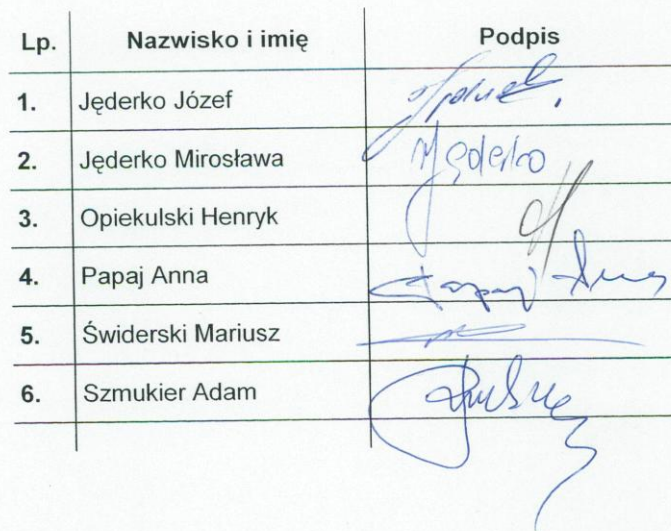 Lp. Nazwisko i imię Podpis
1. Jęderko Józef
2. Jęderko Mirosława MJęderko
3. Opiekulski Henryk
4. Papaj Anna Papaj Anna
5. Świderski Mariusz
6. Szmukier Adam